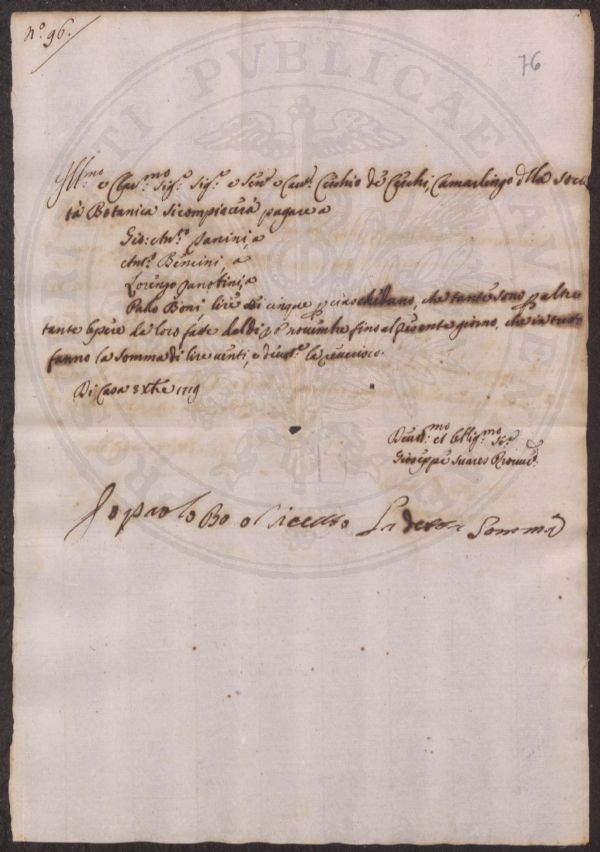 N.º 96.
76
Ill.mo e Clar.mo Sig.r Sig.r e Sen.re e Cav.re Cerchio de Cerchi, Camarlingo della Socie
tà Botanica si compiacerà pagare a
Gio: Ant.º Janini, a
Ant.º Bencini, a
Lorenzo Janotini, a
Palo Boni, lire di cinque p ciascheduno, che tante sono p altre
tante opere da loro fatte dal dì p.º Novembre fino al presente giorno, che in tutto
fanno la somma di lire venti, e devot.e la reverisco.
Di Casa 3 Xbre 1719
Devot.mo et Oblig.mo Se.r
Gioseppe Suares Provv.e
Io paolo Bo o Riceuto La detta Somma